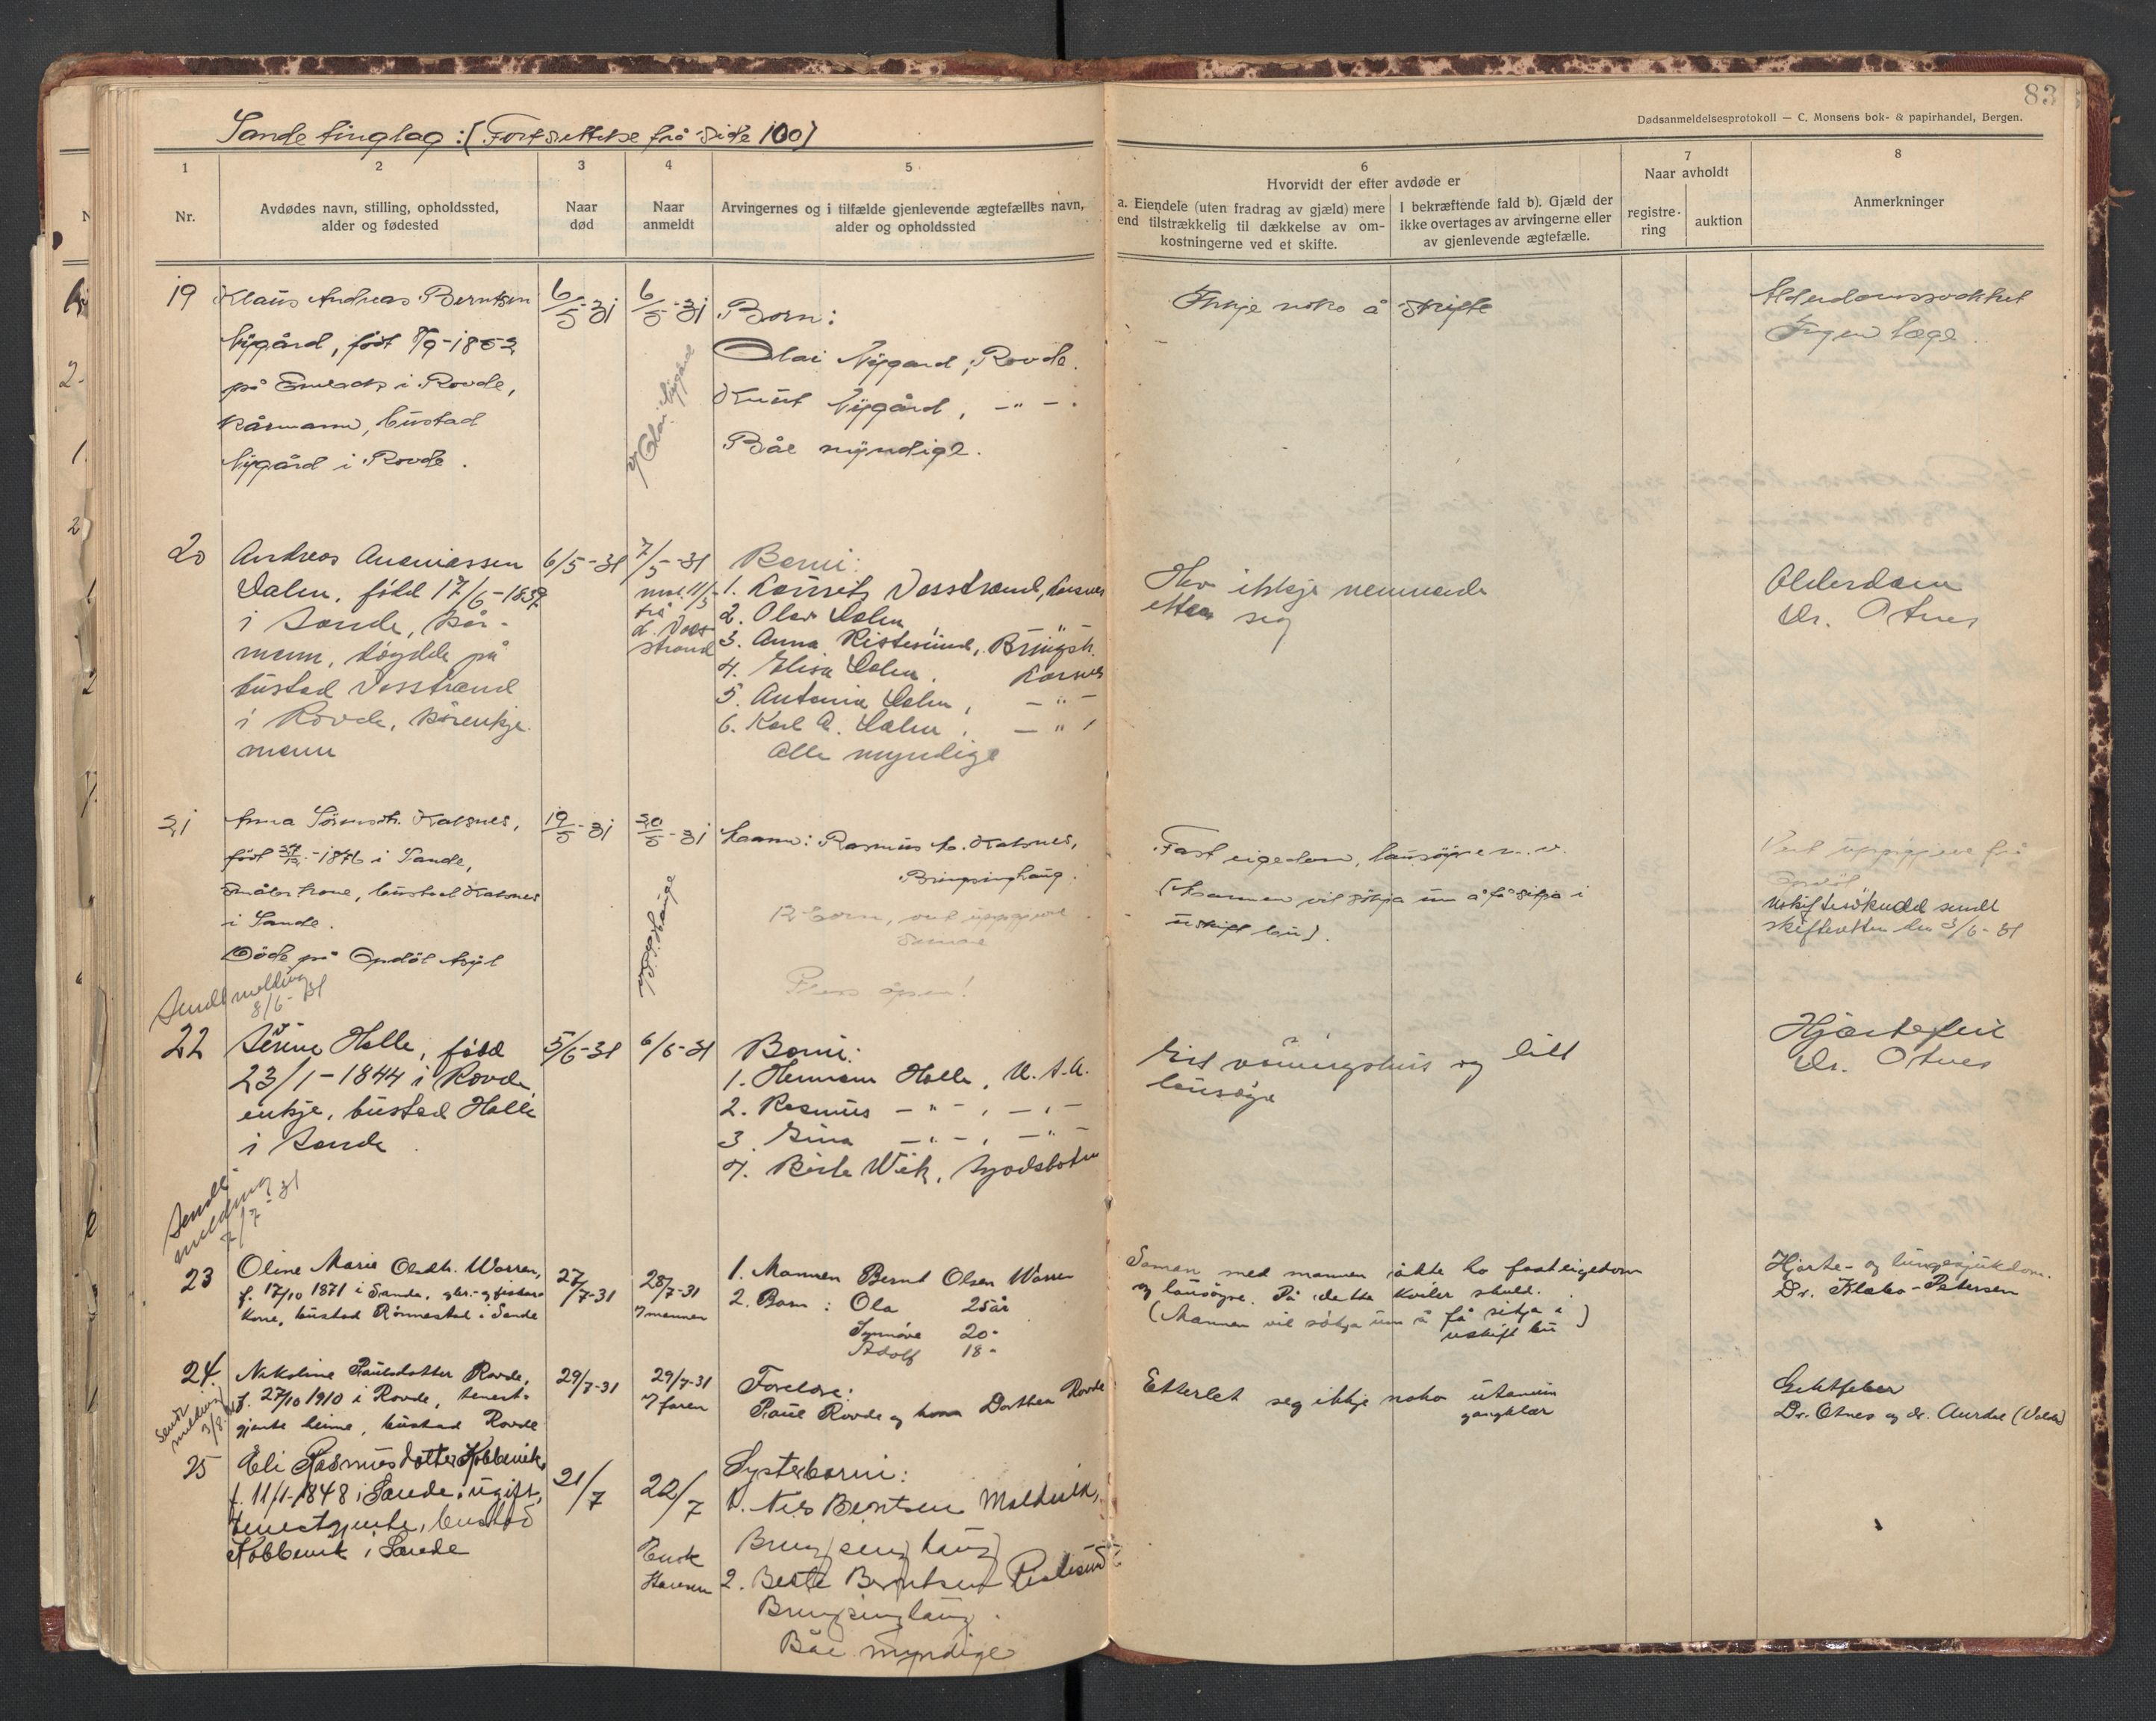 Sande tinglag: (Fortsettelse frå side 100)
83
Dødsanmeldelsesprotokoll — C. Monsens bok- & papirhandel, Bergen.
1
Nr.
2
Avdødes navn, stilling, opholdssted,
alder og fødested
3
Naar
død
4
Naar
anmeldt
5
Arvingernes og i tilfælde gjenlevende ægtefælles navn,
alder og opholdssted
6
Hvorvidt der efter avdøde er
a. Eiendele (uten fradrag av gjæld) mere
end tilstrækkelig til dækkelse av om-
kostningerne ved et skifte.
I bekræftende fald b). Gjæld der
ikke overtages av arvingerne eller
av gjenlevende ægtefælle.
7
Naar avholdt
registre-
ring
auktion
8
Anmerkninger
19
Klaus Andreas Berntsen
Nygård, født /9-1852
på i Rovde,
Kårmann, bustad
Nygård i Rovde.
6/5-31
6/5-31
v/ Olai Nygard
Born:
Olai Nygard, Rovde.
Knut Nygård, -"-.
Båe myndige.
Ikkje noko å skifte
Alderdomssvakhet
Ingen læge.
20
Andreas Ananiassen
Dalen, fødd 17/6-1837
i Sande, kår-
mann, døydde på
bustad Vasstrand
i Rovde,
mann
6/5-31
7/5-31
frå
L. Vas-
strand
Borni:
1. Lauritz Vasstrand,
2. Olav Dalen, "
3. Anna Ristesund, Bringsh.
4. Elisa Dalen,
5. Antonia Dalen, -"-
6. Karl A. Dalen, -"
Alle myndige
Hev ikkje nemnande
etter seg
Alderdom
Dr. Otnes
21
Anna Katsnes,
født 1876 i Sande,
bustad Katsnes
i Sande.
Døde på Opdøl Asyl
19/5-31
20/5-31
Mann: Rasmus Katsnes,
Bringsinghaug.
12 born, vert uppgjeve
senare
Plass åpen!
Fast eigedom, lausøyre m.v.
(Mannen vil søkja um å få sitja i
uskift bu).
Vert uppgjeve frå
Opdøl
Uskiftesøknad sendt
skifteretten den 3/6-31
Sendt melding
8/6-31
22
Holle, fødd
23/1-1844 i Rovde
enkje, bustad Holle
i Sande.
5/6-31
6/6-31
Borni:
1. Hermann Holle, U.S.A.
2. Rasmus -"-, -"-
3. Gina -"-, -"-
4. Berte Wik, Syvdsbotn
Eit våningshus og litt
lausøyre
Hjartefeil
Dr. Otnes
Sendt
melding
/7-31
23
Oline Marie Olsdtr. Warren,
f. 17/10 1871 i Sande, gbr.- og fiskar
kone, bustad Rønnestad i Sande
27/7-31
28/7-31
v/ mannen
1. Mannen Bernt Olsen Warren
2. Born: Ola 25 år
Synnøve 20 -
Adolf 18 -
Saman med mannen åtte ho fasteigedom
og lausøyre. På dette kviler skuld.
(Mannen vil søkja um å få sitja i
uskift bu)
Hjarte- og lungesjukdom.
Dr. Klabo-Petersen
24.
Nikoline Paulsdotter Rovde,
f. 27/10 1910 i Rovde, tenest-
gjente heime, bustad Rovde
29/7-31
29/7-31
v/ faren
Foreldre:
Paul Rovde og kona Dorthea Rovde
Etterlet seg ikkje noko utanum
gangklær
Giktfeber
Dr. Otnes og dr. Aurdal (Volda)
Sendt
melding
3/8-31
25
Eli Rasmusdotter Kobbevik,
f. 11/1-1848 i Sande, ugift,
tenestgjente, bustad
Kobbevik i Sande
21/7
22/7
Systerborni:
1. Nils Berntsen Molduik,
Bringsinghaug
2. Berte Berntsen Ristesund
Bringsinghaug.
Båe myndige